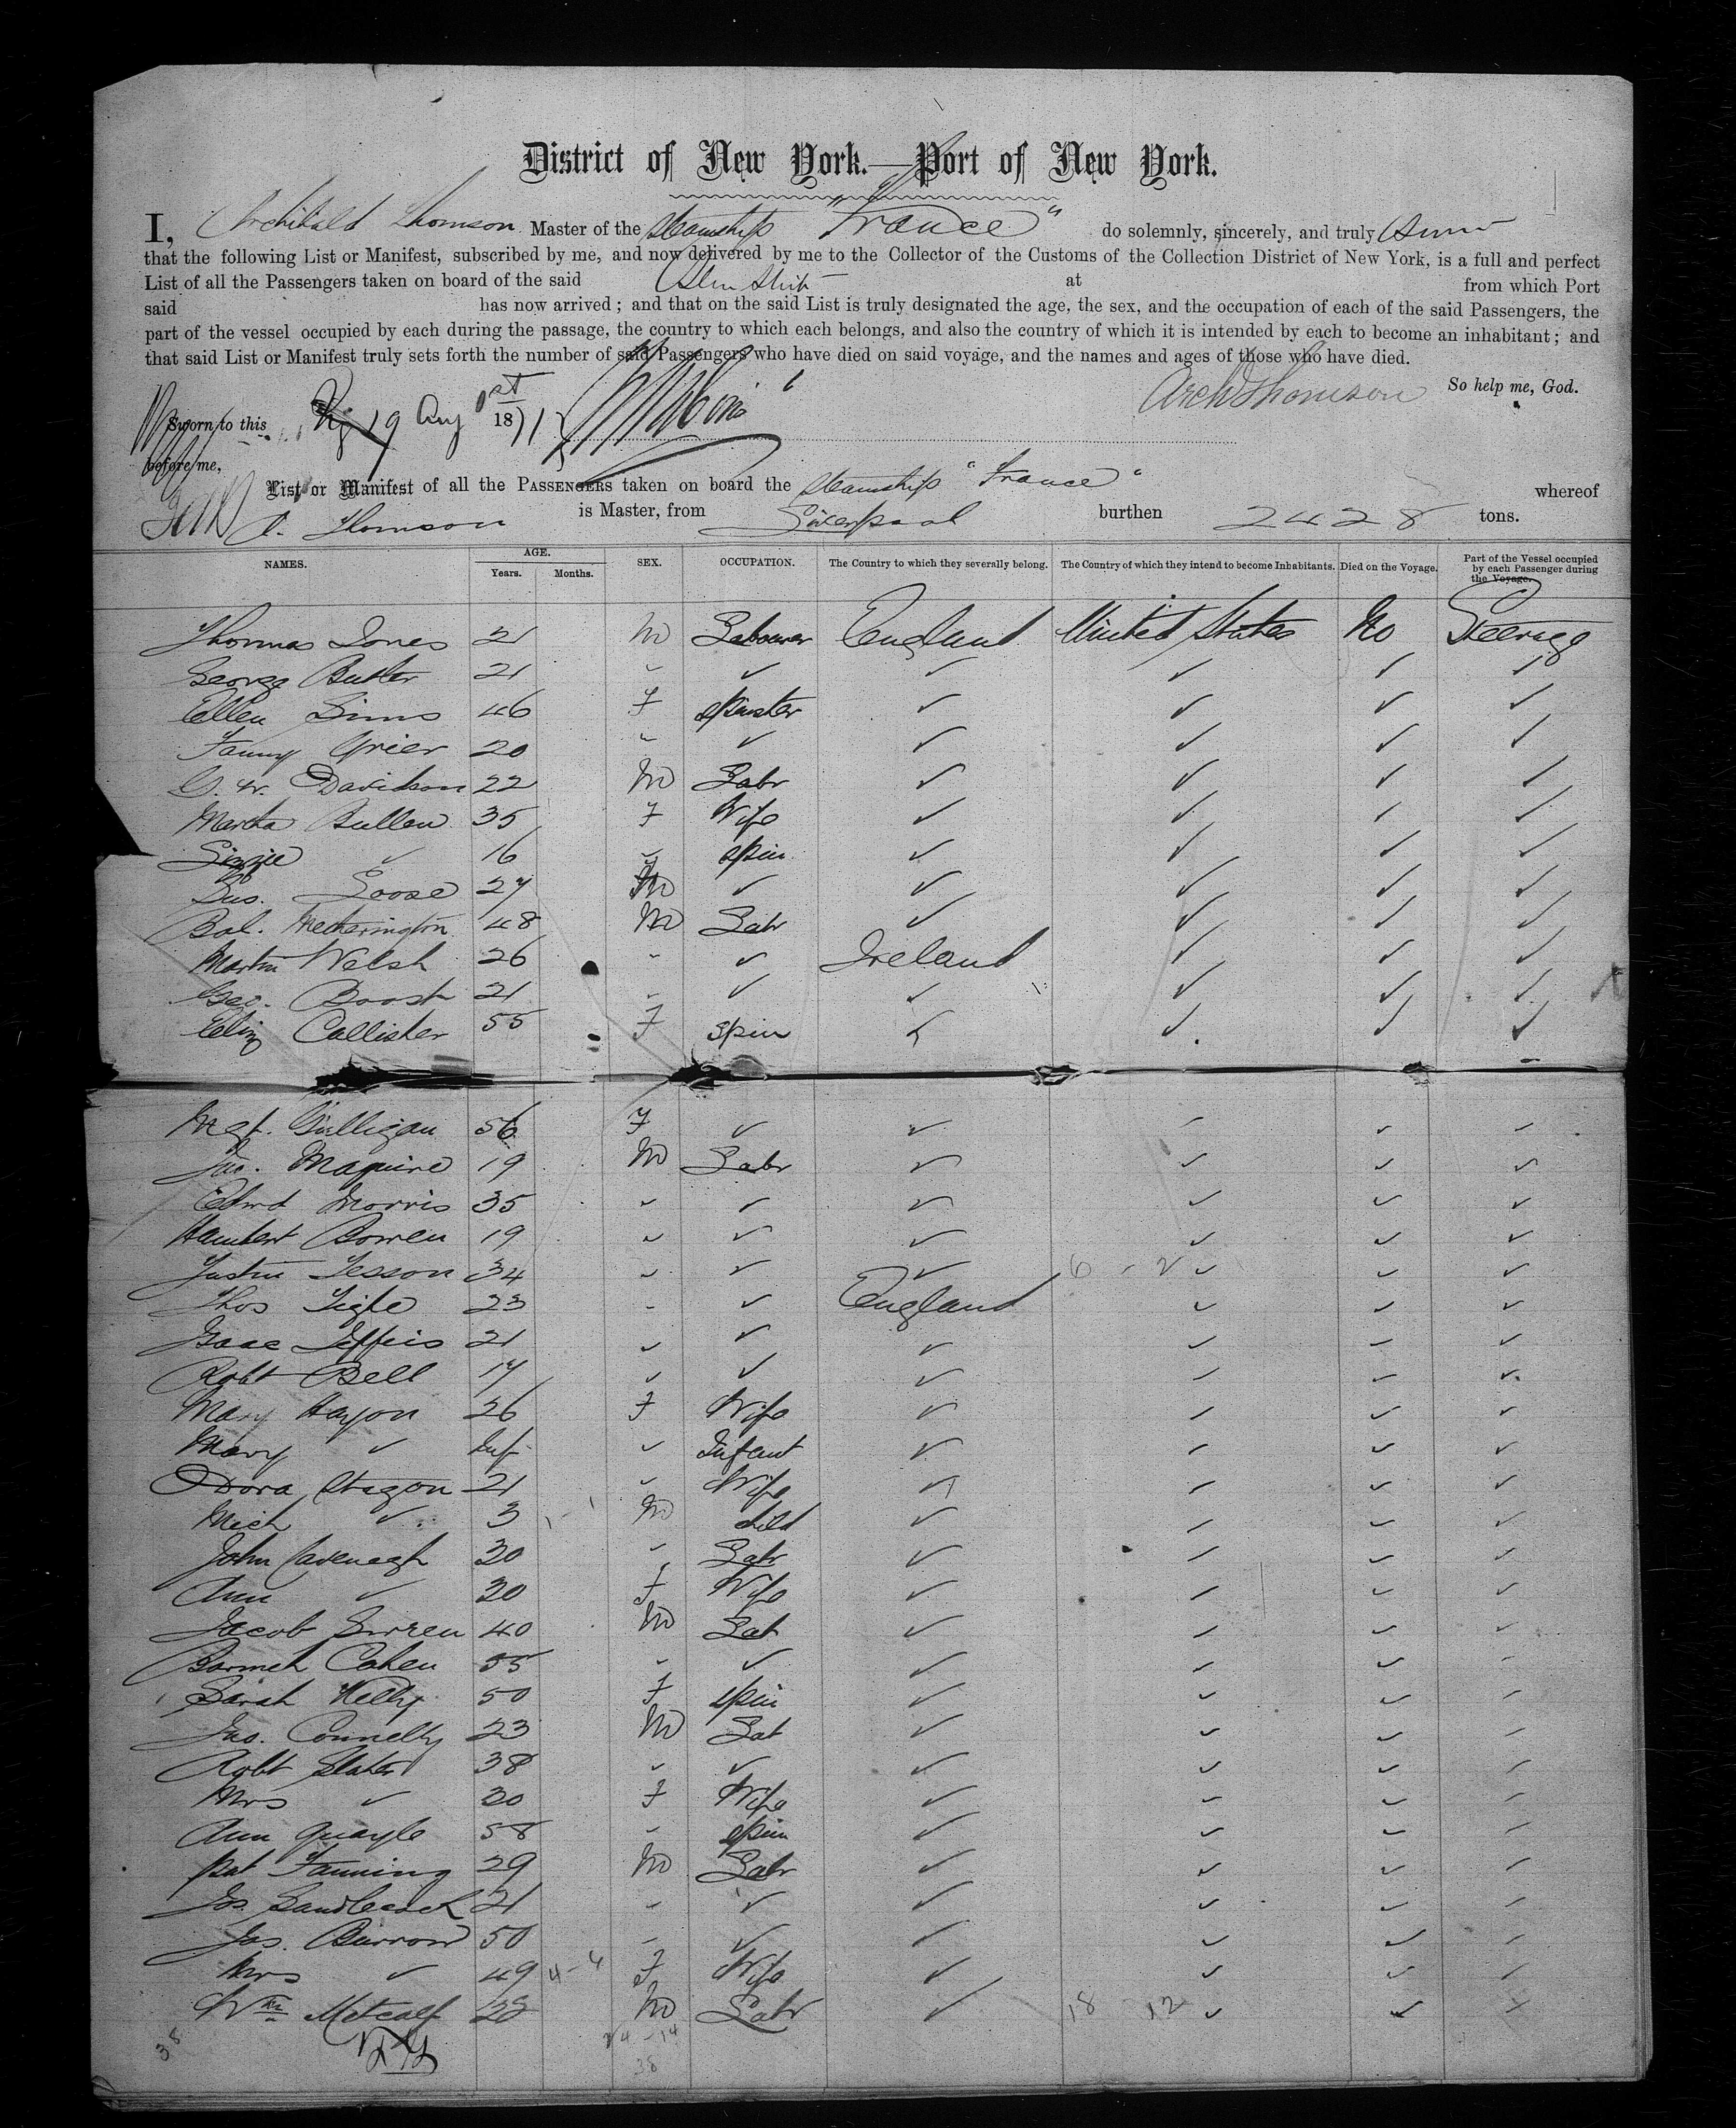 District of New York.—Port of New York.
I, Archibald Thomson Master of the Steamship "France" do solemnly, sincerely, and truly
that the following List or Manifest, subscribed by me, and now delivered by me to the Collector of the Customs of the Collection District of New York, is a full and perfect
List of all the Passengers taken on board of the said at from which Port
said has now arrived; and that on the said List is truly designated the age, the sex, and the occupation of each of the said Passengers, the
part of the vessel occupied by each during the passage, the country to which each belongs, and also the country of which it is intended by each to become an inhabitant; and
that said List or Manifest truly sets forth the number of said Passengers who have died on said voyage, and the names and ages of those who have died.
Arch Thomson So help me, God.
Sworn to this Aug 1871
before me,
List or Manifest of all the Passengers taken on board the Steamship "France" whereof
A. Thomson is Master, from Liverpool burthen 2428 tons.
NAMES. AGE. Years. Months. SEX. OCCUPATION. The Country to which they severally belong. The Country of which they intend to become Inhabitants. Died on the Voyage. Part of the Vessel occupied by each Passenger during the Voyage.
Thomas Jones 21 M Labourer England United States No Steerage
George Butler 21 " ✓ ✓ ✓ ✓ ✓
Ellen Sims 46 F Spinster ✓ ✓ ✓ ✓
Fanny Grier 20 " ✓ ✓ ✓ ✓ ✓
Davidson 22 M Labr ✓ ✓ ✓ ✓
Martha Bullen 35 F Wife ✓ ✓ ✓ ✓
Lizzie ✓ 16 " Spin ✓ ✓ ✓ ✓
Goose 27 M ✓ ✓ ✓ ✓ ✓
Metherington 48 M Labr ✓ ✓ ✓ ✓
Martin Welsh 26 " ✓ Ireland ✓ ✓ ✓
Geo. 21 " ✓ ✓ ✓ ✓ ✓
Eliz Callister 55 F Spin ✓ ✓ ✓ ✓
Mgt. Gilligan 56 F ✓ ✓ ✓ ✓ ✓
Jno. Maguire 19 M Labr ✓ ✓ ✓ ✓
Edwd Morris 35 " ✓ ✓ ✓ ✓ ✓
Bowen 19 " ✓ ✓ ✓ ✓ ✓
34 " ✓ ✓ 6 - 2 ✓ ✓ ✓
Thos Tighe 23 " ✓ England ✓ ✓ ✓
Isaac Jeffris 21 " ✓ ✓ ✓ ✓ ✓
Robt Bell 17 " ✓ ✓ ✓ ✓ ✓
Mary Hayon 26 F Wife ✓ ✓ ✓ ✓
Mary ✓ Inf " Infant ✓ ✓ ✓ ✓
Dora 21 " Wife ✓ ✓ ✓ ✓
Mich ✓ 3 M child ✓ ✓ ✓ ✓
John Cavenagh 20 " Labr ✓ ✓ ✓ ✓
Ann ✓ 20 F Wife ✓ ✓ ✓ ✓
Jacob 40 M Lab ✓ ✓ ✓ ✓
Cohen 55 " ✓ ✓ ✓ ✓ ✓
Sarah Kelly 50 F Spin ✓ ✓ ✓ ✓
Jno. Connelly 23 M Lab ✓ ✓ ✓ ✓
Robt Slater 38 " ✓ ✓ ✓ ✓ ✓
Mrs ✓ 20 F Wife ✓ ✓ ✓ ✓
Ann Quayle 58 " Spin ✓ ✓ ✓ ✓
Pat Fanning 29 M Labr ✓ ✓ ✓ ✓
Jos. 21 " ✓ ✓ ✓ ✓ ✓
Jas. Burrow 50 " ✓ ✓ ✓ ✓ ✓
Mrs ✓ 49 4-4 F Wife ✓ ✓ ✓ ✓
Wm Metcalf 28 M Labr ✓ 18 12 ✓ ✓ ✓
38 24-14
38